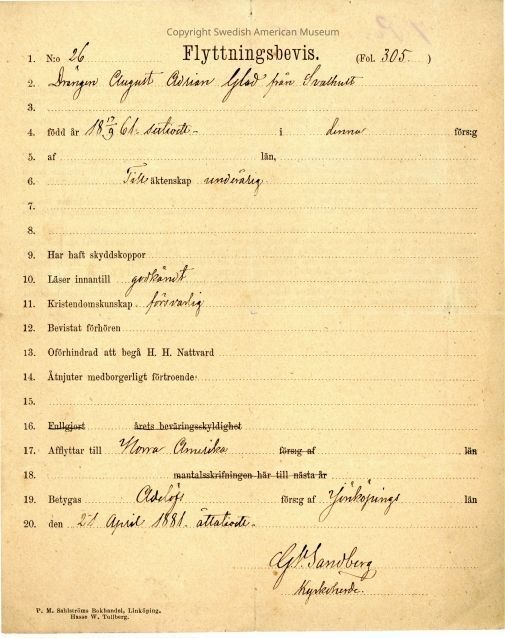 Copyright Swedish American Museum
Flyttningsbevis.
1. N:o 26 (Fol. 305. )
2. Drängen August Adrian Glad från Svalhult
3.
4. född år 18 17/9 61. sextiоett i denna förs:g
5. af län,
6. Till äktenskap underårig
7.
8.
9. Har haft skyddskoppor
10. Läser innantill godkändt
11. Kristendomskunskap försvarlig
12. Bevistat förhören
13. Oförhindrad att begå H. H. Nattvard
14. Åtnjuter medborgerligt förtroende
15.
16. Fullgjort årets beväringsskyldighet
17. Afflyttar till Norra Amerika förs:g af län
18. mantalsskrifningen här till nästa år
19. Betygas Adelöfs förs:g af Jönköpings län
20. den 21 April 1881. åttatioett.
Sandberg
Kyrkoherde.
P. M. Sahlströms Bokhandel, Linköping.
Hasse W. Tullberg.